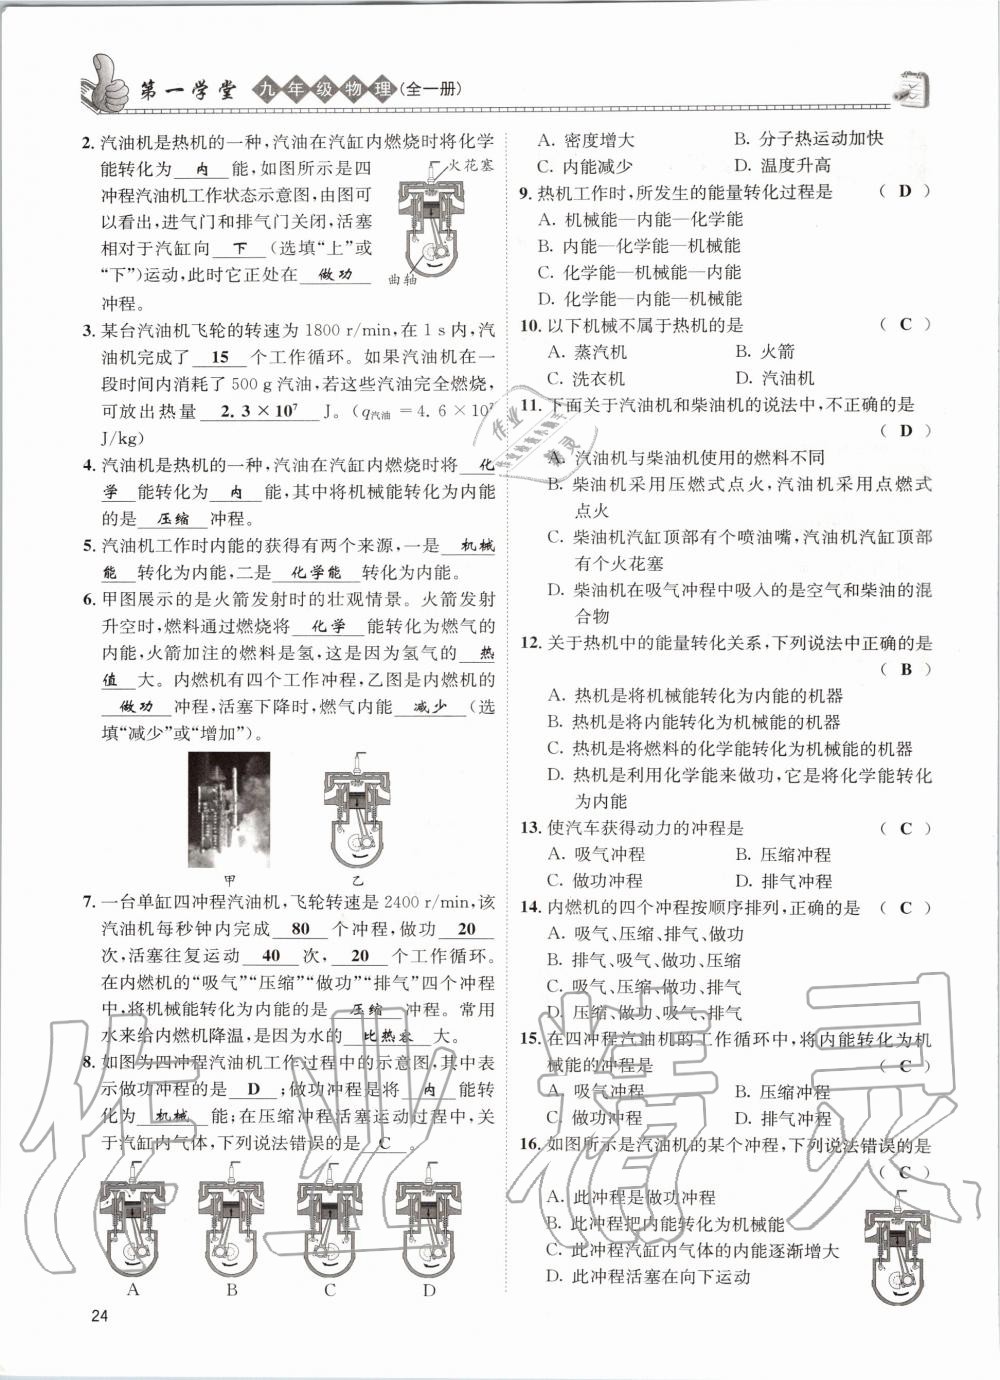 第一学堂 九年级物理(全一册)
2. 汽油机是热机的一种,汽油在汽缸内燃烧时将化学
能转化为 内 能,如图所示是四
冲程汽油机工作状态示意图,由图可
以看出,进气门和排气门关闭,活塞
相对于汽缸向 下 (选填“上”或
“下”)运动,此时它正处在 做功
冲程。
火花塞
曲轴
3. 某台汽油机飞轮的转速为 1800 r/min,在 1 s 内,汽
油机完成了 15 个工作循环。如果汽油机在一
段时间内消耗了 500 g 汽油,若这些汽油完全燃烧,
可放出热量 2.3×10⁷ J。(q汽油=4.6×10⁷
J/kg)
4. 汽油机是热机的一种,汽油在汽缸内燃烧时将 化
学 能转化为 内 能,其中将机械能转化为内能
的是 压缩 冲程。
5. 汽油机工作时内能的获得有两个来源,一是 机械
能 转化为内能,二是 化学能 转化为内能。
6. 甲图展示的是火箭发射时的壮观情景。火箭发射
升空时,燃料通过燃烧将 化学 能转化为燃气的
内能,火箭加注的燃料是氢,这是因为氢气的 热
值 大。内燃机有四个工作冲程,乙图是内燃机的
做功 冲程,活塞下降时,燃气内能 减少 (选
填“减少”或“增加”)。
甲 乙
7. 一台单缸四冲程汽油机,飞轮转速是 2400 r/min,该
汽油机每秒钟内完成 80 个冲程,做功 20
次,活塞往复运动 40 次, 20 个工作循环。
在内燃机的“吸气”“压缩”“做功”“排气”四个冲程
中,将机械能转化为内能的是 压缩 冲程。常用
水来给内燃机降温,是因为水的 比热容 大。
8. 如图为四冲程汽油机工作过程中的示意图,其中表
示做功冲程的是 D ;做功冲程是将 内 能转
化为 机械 能;在压缩冲程活塞运动过程中,关
于汽缸内气体,下列说法错误的是 C
A B C D
24
A. 密度增大 B. 分子热运动加快
C. 内能减少 D. 温度升高
9. 热机工作时,所发生的能量转化过程是 ( D )
A. 机械能—内能—化学能
B. 内能—化学能—机械能
C. 化学能—机械能—内能
D. 化学能—内能—机械能
10. 以下机械不属于热机的是 ( C )
A. 蒸汽机 B. 火箭
C. 洗衣机 D. 汽油机
11. 下面关于汽油机和柴油机的说法中,不正确的是
( D )
A. 汽油机与柴油机使用的燃料不同
B. 柴油机采用压燃式点火,汽油机采用点燃式
点火
C. 柴油机汽缸顶部有个喷油嘴,汽油机汽缸顶部
有个火花塞
D. 柴油机在吸气冲程中吸入的是空气和柴油的混
合物
12. 关于热机中的能量转化关系,下列说法中正确的是
( B )
A. 热机是将机械能转化为内能的机器
B. 热机是将内能转化为机械能的机器
C. 热机是将燃料的化学能转化为机械能的机器
D. 热机是利用化学能来做功,它是将化学能转化
为内能
13. 使汽车获得动力的冲程是 ( C )
A. 吸气冲程 B. 压缩冲程
C. 做功冲程 D. 排气冲程
14. 内燃机的四个冲程按顺序排列,正确的是 ( C )
A. 吸气、压缩、排气、做功
B. 排气、吸气、做功、压缩
C. 吸气、压缩、做功、排气
D. 压缩、做功、吸气、排气
15. 在四冲程汽油机的工作循环中,将内能转化为机
械能的冲程是 ( C )
A. 吸气冲程 B. 压缩冲程
C. 做功冲程 D. 排气冲程
16. 如图所示是汽油机的某个冲程,下列说法错误的是
( C )
A. 此冲程是做功冲程
B. 此冲程把内能转化为机械能
C. 此冲程汽缸内气体的内能逐渐增大
D. 此冲程活塞在向下运动
作业精灵